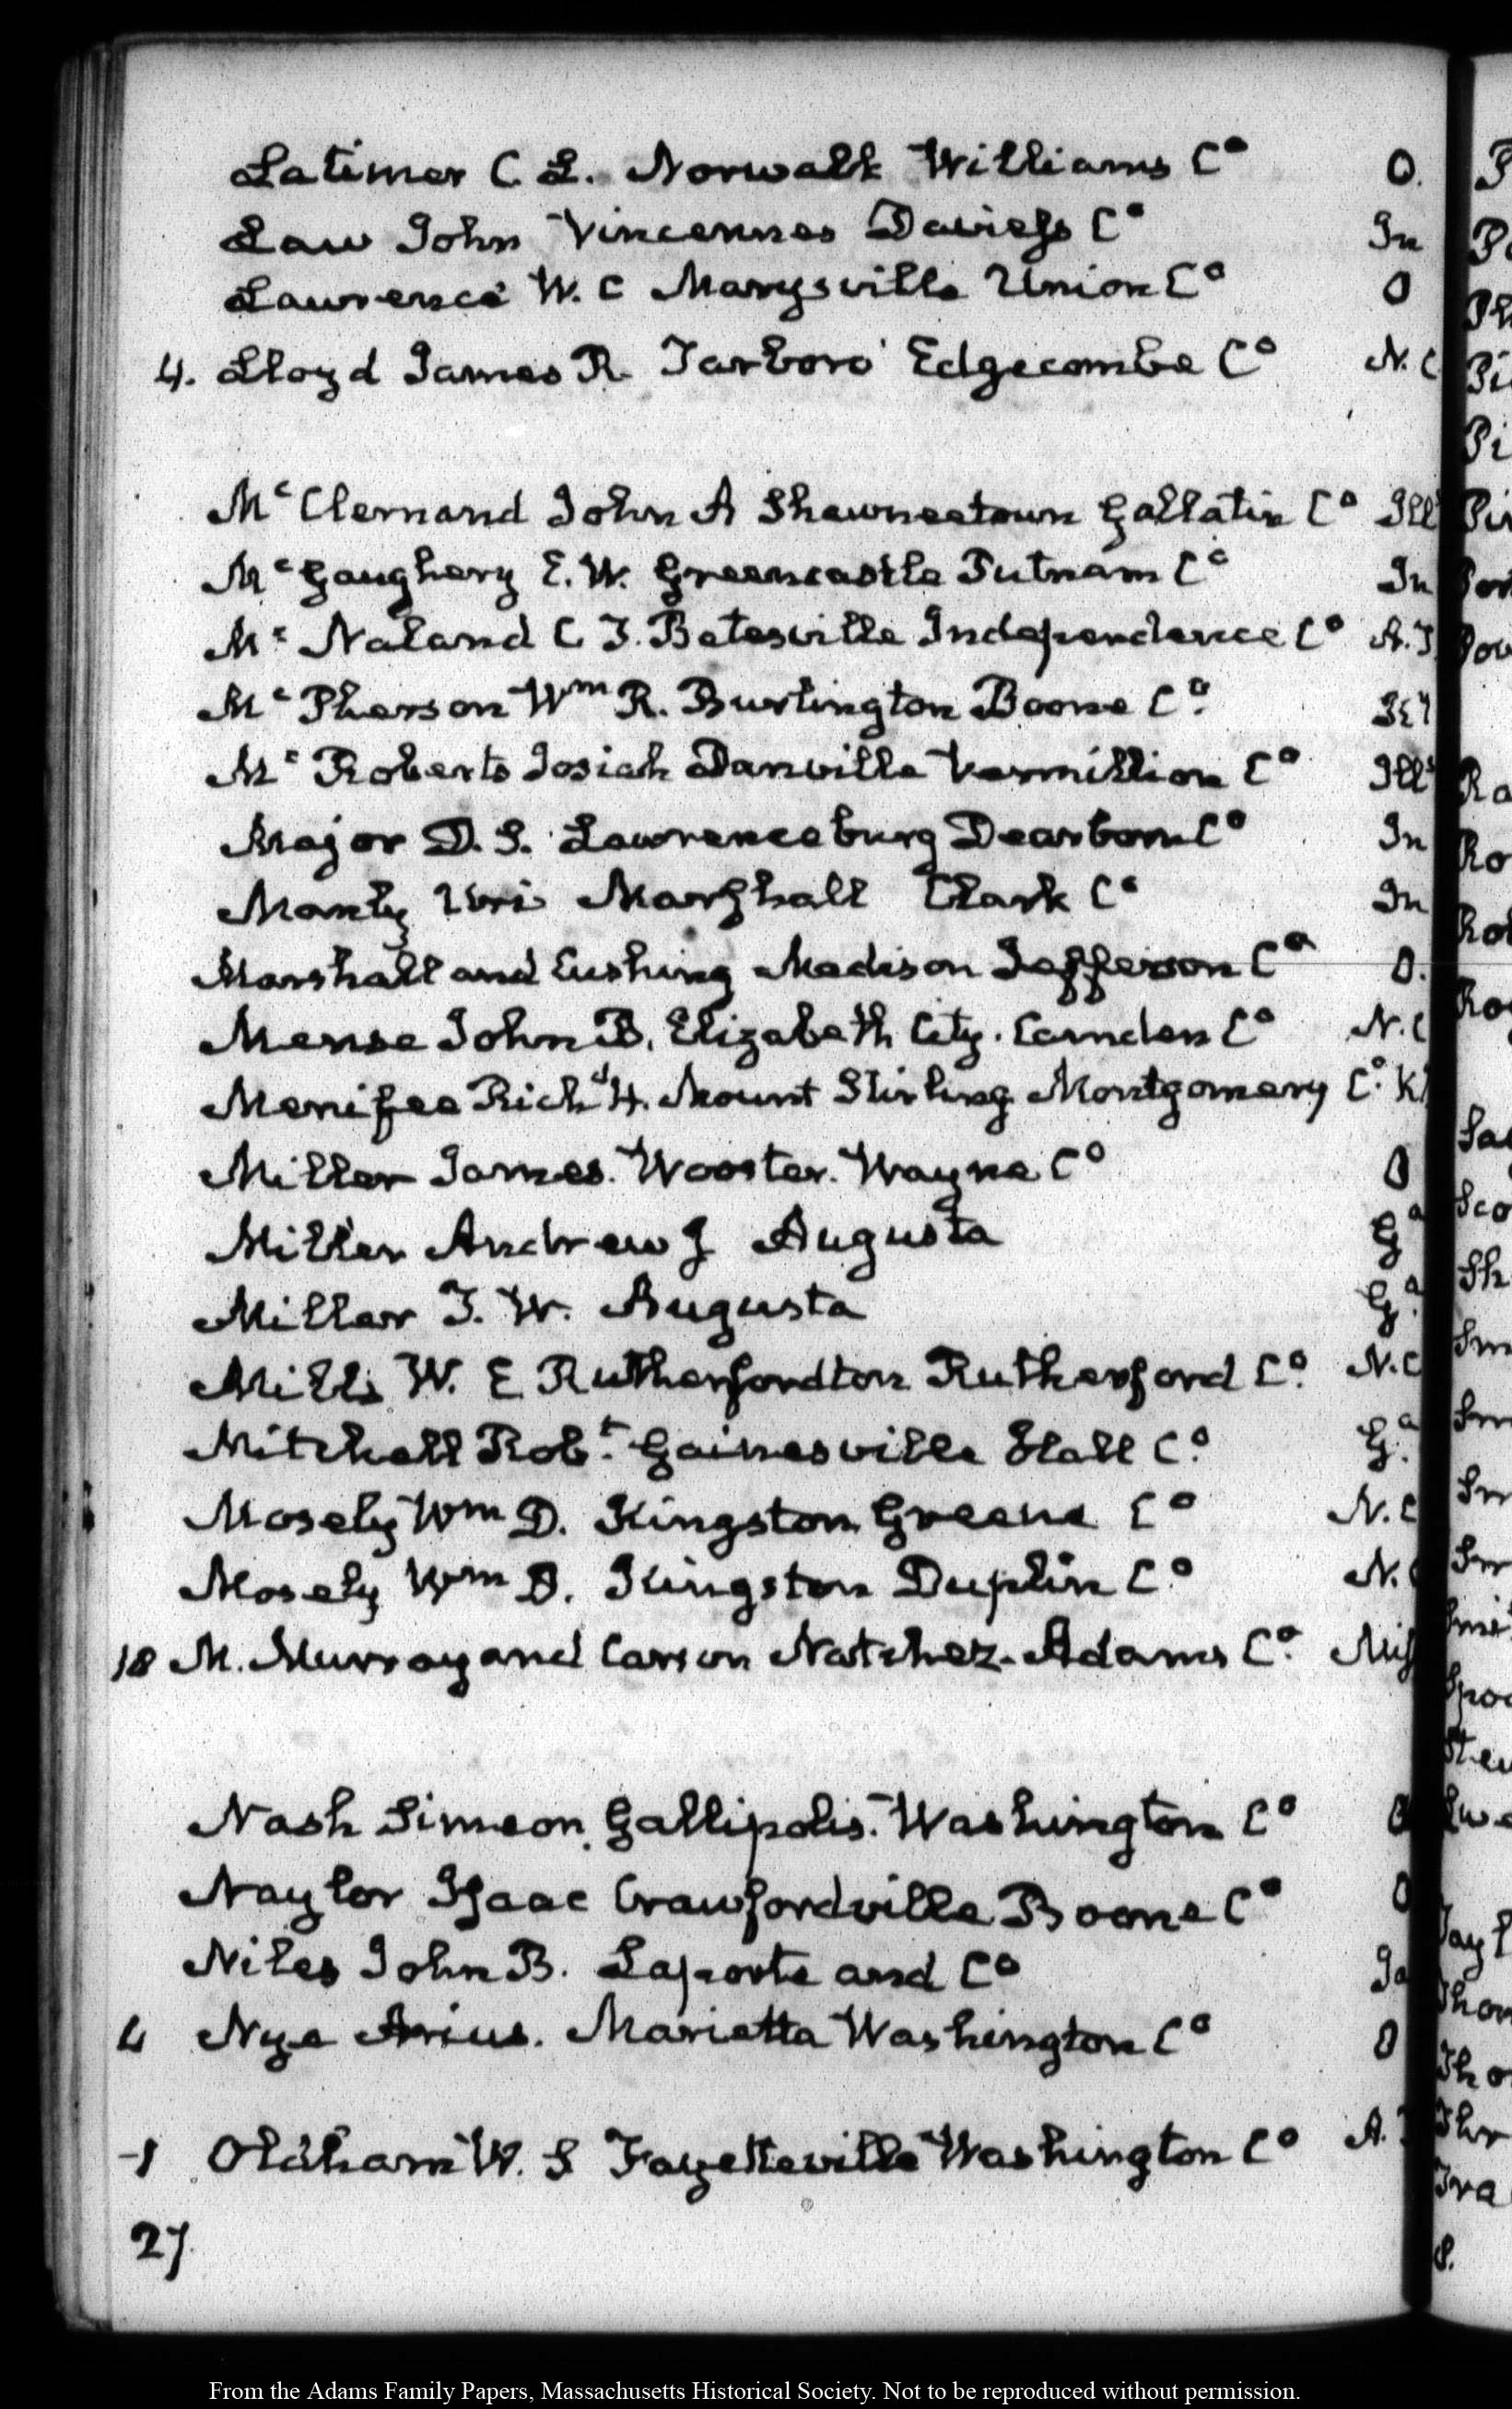 Latimer C. L. Norwalk Williams Co O.
Law John Vincennes Daviess Co In
Lawrence W. C Marysville Union Co O
4. Lloyd James R. Tarboro' Edgecombe Co N. C
Mc Clernand John A Shawneetown Gallatin Co Ill
Mc Gaughery E. W. Greencastle Putnam Co In
Mc Naland C. F. Batesville Independence Co A. T
Mc Pherson Wm R. Burlington Boone Co.
Mc Roberts Josiah Danville Vermillion Co Ills
Major D. S. Lawrenceburg Dearborn Co In
Manly Uri Marshall Clark Co In
Marshall and Cushing Madison Jefferson Co O.
Mense John B. Elizabeth City. Camden Co N. C
Menifee Richd H. Mount Stirling Montgomery Co. K
Miller James. Wooster. Wayne Co O
Miller Andrew J Augusta Ga
Millar T. W. Augusta Ga.
Mills W. E Rutherfordton Rutherford Co. N. C
Mitchell Robt. Gainesville Hall Co. Ga.
Mosely Wm D. Kingston Greene Co N. C
Mosely Wm D. Kingston Duplin Co. N. C
18 M. Murray and Carson Natchez. Adams Co. Mis
Nash Simeon. Gallipolis. Washington Co O
Naylor Isaac Crawfordville Boone Co O
Niles John B. Laporte and Co Ia
4 Nye Arius. Marietta Washington Co O
1 Oldham W. S Fayetteville Washington Co A. T
27.
From the Adams Family Papers, Massachusetts Historical Society. Not to be reproduced without permission.